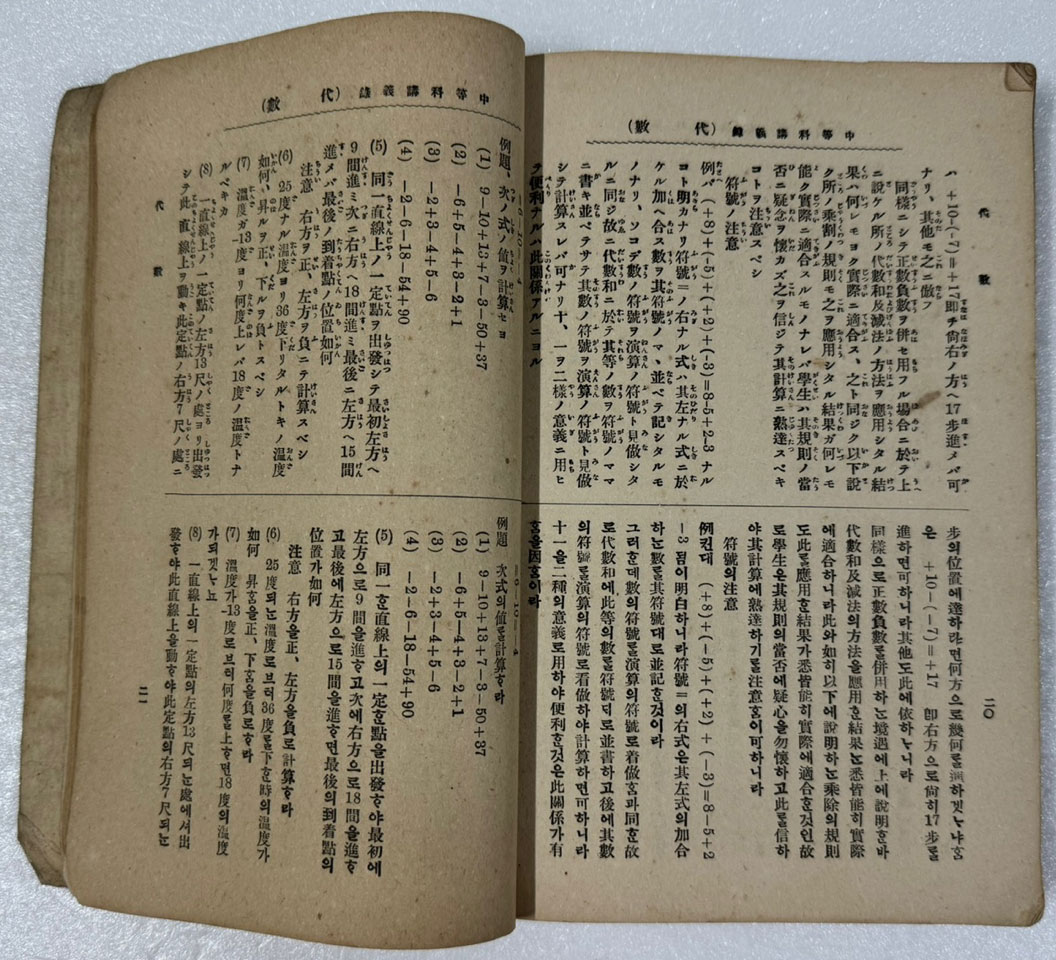 中等科講義錄（代　數）
代　數
ハ +10-(-7)=+17卽チ尙右ノ方ヘ17步進メバ可
ナリ、其他モ之ニ倣フ
同樣ニシテ正數負數ヲ併セ用フル場合ニ於テ上
ニ說ケル所ノ代數和及減法ノ方法ヲ應用シタル結
果ハ何レモヨク實際ニ適合ス、之ト同ジク以下說
ク所ノ乘割ノ規則モ之ヲ應用シタル結果ガ何レモ
能ク實際ニ適合スルモノナレバ學生ハ其規則ノ當
否ニ疑念ヲ懷カズ之ヲ信ジテ其計算ニ熟達スベキ
コトヲ注意スベシ
符號ノ注意
例バ (+8)+(-5)+(+2)+(-3)=8-5+2-3 ナル
コト明カナリ符號=ノ右ナル式ハ其左ナル式ニ於
ケル加ヘ合ス數ヲ其符號ノマヽ並ベテ記シタルモ
ノナリ、ソコデ數ノ符號ヲ演算ノ符號ト見做シタ
ルニ同ジ故ニ代數和ニ於テ其等ノ數ヲ符號ノママ
ニ書キ並ベサテ其數ノ符號ヲ演算ノ符號ト見做
シテ計算スレバ可ナリ十、一ヲ二樣ノ意義ニ用ヒ
テ便利ナルハ此關係アルニヨル
二〇
步의位置에達하랴면何方으로幾何를進하겟ᄂᆞ냐홈
은 +10-(-7)=+17 卽右方으로尙히17步를
進하면可하니라其他도此에依하ᄂᆞ니라
同樣으로正數負數를併用하ᄂᆞᆫ境遇에上에說明ᄒᆞᆫ바
代數和及減法의方法을應用ᄒᆞᆫ結果ᄂᆞᆫ悉皆能히實際
에適合하니라此와如히以下에說明하ᄂᆞᆫ乘除의規則
도此를應用ᄒᆞᆫ結果가悉皆能히實際에適合ᄒᆞᆫ것인故
로學生은其規則의當否에疑心을勿懷하고此를信하
야其計算에熟達하기를注意홈이可하니라
符號의注意
例컨대 (+8)+(-5)+(+2)+(-3)=8-5+2
-3 됨이明白하니라符號=의右式은其左式의加合
하ᄂᆞᆫ數를其符號대로並記ᄒᆞᆫ것이라
그러ᄒᆞᆫ데數의符號를演算의符號로看做홈과同ᄒᆞᆫ故
로代數和에此等의數를符號되로並書하고後에其數
의符號를演算의符號로看做하야計算하면可하니라
十一을二種의意義로用하야便利ᄒᆞᆫ것은此關係가有
홈을因홈이라
中等科講義錄（代　數）
例題、次ノ式ノ値ヲ計算セヨ
(1) 9-10+13+7-3-50+37
(2) -6+5-4+3-2+1
(3) -2+3-4+5-6
(4) -2-6-18-54+90
(5) 同一直線上ノ一定點ヲ出發シテ最初左方ヘ
9間進ミ次ニ右方ヘ18間進ミ最後ニ左方ヘ15間
進メバ最後ノ到着點ノ位置如何
注意 右方ヲ正、左方ヲ負ニテ計算スベシ
(6) 25度ナル溫度ヨリ36度下リタルトキノ溫度
如何、昇ルヲ正、下ルヲ負トスベシ
(7) 溫度ガ-13度ヨリ何度上レバ18度ノ溫度トナ
ルベキカ
(8) 一直線上ノ一定點ノ左方13尺ノ處ヨリ出發
シテ此直線上ヲ動キ此定點ノ右方7尺ノ處ニ
代　數
例題 次式의値를計算ᄒᆞ라
(1) 9-10+13+7-3-50+37
(2) -6+5-4+3-2+1
(3) -2+3-4+5-6
(4) -2-6-18-54+90
(5) 同一ᄒᆞᆫ直線上의一定ᄒᆞᆫ點을出發ᄒᆞ야最初에
左方으로9間을進ᄒᆞ고次에右方으로18間을進ᄒᆞ
고最後에左方으로15間을進ᄒᆞ면最後의到着點의
位置가如何
注意 右方을正、左方을負로計算ᄒᆞ라
(6) 25度되ᄂᆞᆫ溫度로브터36度를下ᄒᆞᆫ時의溫度가
如何 昇홈을正、下홈을負로ᄒᆞ라
(7) 溫度가-13度로브터何度를上ᄒᆞ면18度의溫度
가되겟ᄂᆞ뇨
(8) 一直線上의一定點의左方13尺되ᄂᆞᆫ處에셔出
發ᄒᆞ야此直線上을動ᄒᆞ야此定點의右方7尺되ᄂᆞᆫ
二一